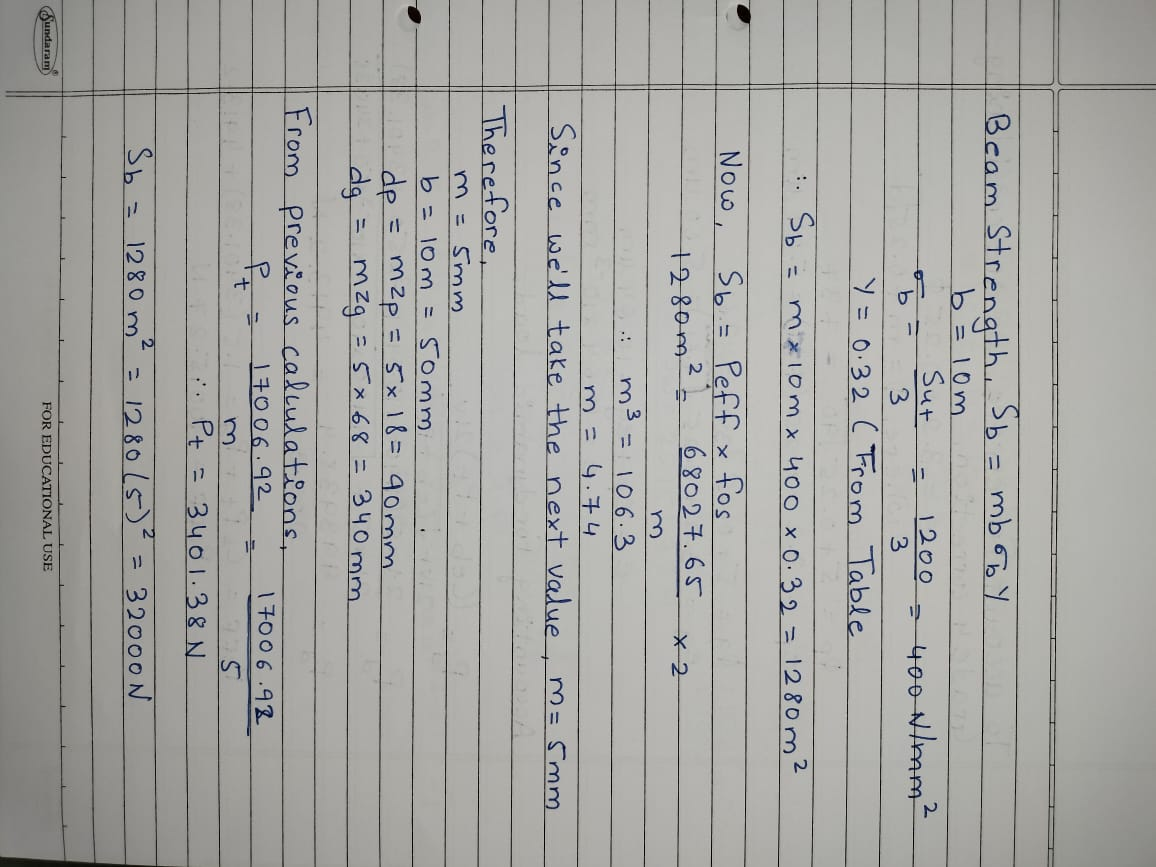 Beam Strength, Sb = mbσbY
b = 10m
σb = Sut/3 = 1200/3 = 400 N/mm²
Y = 0.32 (From Table
∴ Sb = m × 10m × 400 × 0.32 = 1280m²
Now, Sb = Peff × fos
1280m² = 68027.65/m × 2
∴ m³ = 106.3
m = 4.74
Since we'll take the next value, m = 5mm
Therefore,
m = 5mm
b = 10m = 50mm
dp = mzp = 5 × 18 = 90mm
dg = mzg = 5 × 68 = 340mm
From previous calculations,
Pt = 17006.92/m = 17006.92/5
∴ Pt = 3401.38 N
Sb = 1280m² = 1280(5)² = 32000N
Sundaram®
FOR EDUCATIONAL USE